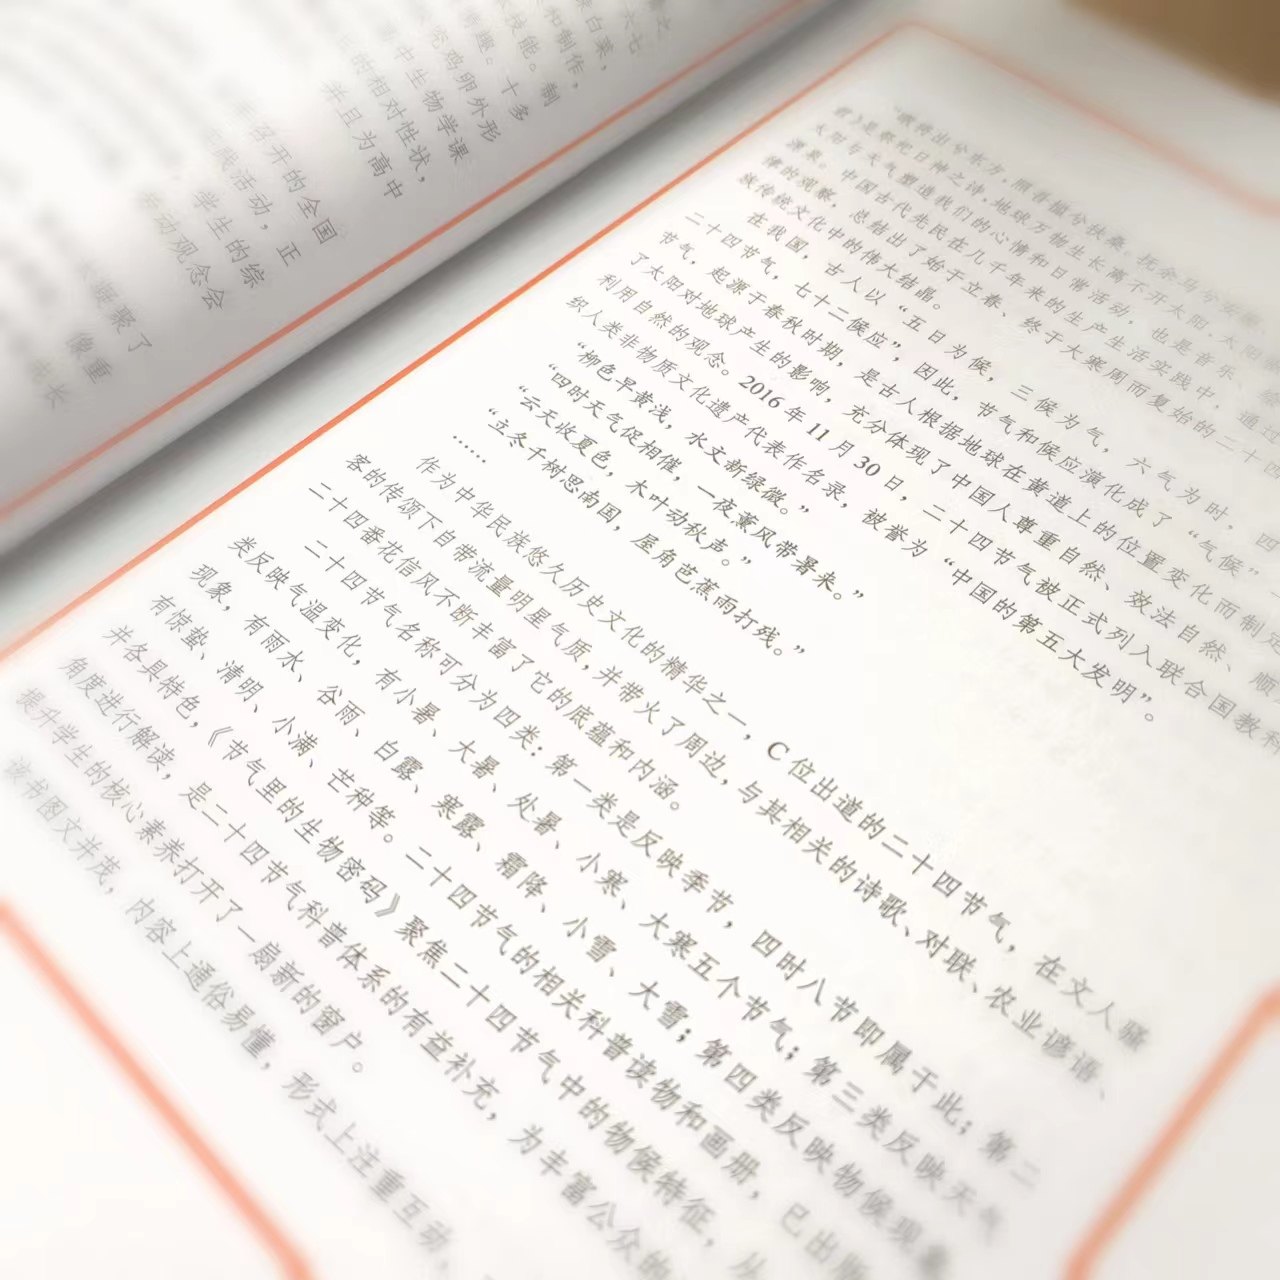 六七
白菜，
和制作，
技能。制
趣。十多
究鸡卵外形
高中生物学课
的相对性状，
并且为高中
召开的全国
践活动，正
学生的综
劳动观念会
凝聚了
像重
成长
“暾将出兮东方，照吾槛兮扶桑。抚余马兮安驱，
君》是祭祀日神之诗，地球万物生长离不开太阳，太阳
太阳与天气塑造我们的心情和日常活动，也是音乐、绘
源泉。中国古代先民在几千年来的生产生活实践中，通过
律的观察，总结出了始于立春、终于大寒周而复始的二十四
族传统文化中的伟大结晶。
在我国，古人以“五日为候，三候为气，六气为时，四
二十四节气，七十二候应”，因此，节气和候应演化成了“气候”一
节气，起源于春秋时期，是古人根据地球在黄道上的位置变化而制定
了太阳对地球产生的影响，充分体现了中国人尊重自然、效法自然、顺
利用自然的观念。2016年11月30日，二十四节气被正式列入联合国教科
织人类非物质文化遗产代表作名录，被誉为“中国的第五大发明”。
“柳色早黄浅，水文新绿微。”
“四时天气促相催，一夜薰风带暑来。”
“云天收夏色，木叶动秋声。”
“立冬千树思南国，屋角芭蕉雨打残。”
……
作为中华民族悠久历史文化的精华之一，C位出道的二十四节气，在文人骚
客的传颂下自带流量明星气质，并带火了周边，与其相关的诗歌、对联、农业谚语、
二十四番花信风不断丰富了它的底蕴和内涵。
二十四节气名称可分为四类：第一类是反映季节，四时八节即属于此；第二
类反映气温变化，有小暑、大暑、处暑、小寒、大寒五个节气；第三类反映天气
现象，有雨水、谷雨、白露、寒露、霜降、小雪、大雪；第四类反映物候现象
有惊蛰、清明、小满、芒种等。二十四节气的相关科普读物和画册，已出版
并各具特色，《节气里的生物密码》聚焦二十四节气中的物候特征，从
角度进行解读，是二十四节气科普体系的有益补充，为丰富公众的
提升学生的核心素养打开了一扇新的窗户。
该书图文并茂，内容上通俗易懂，形式上注重互动，